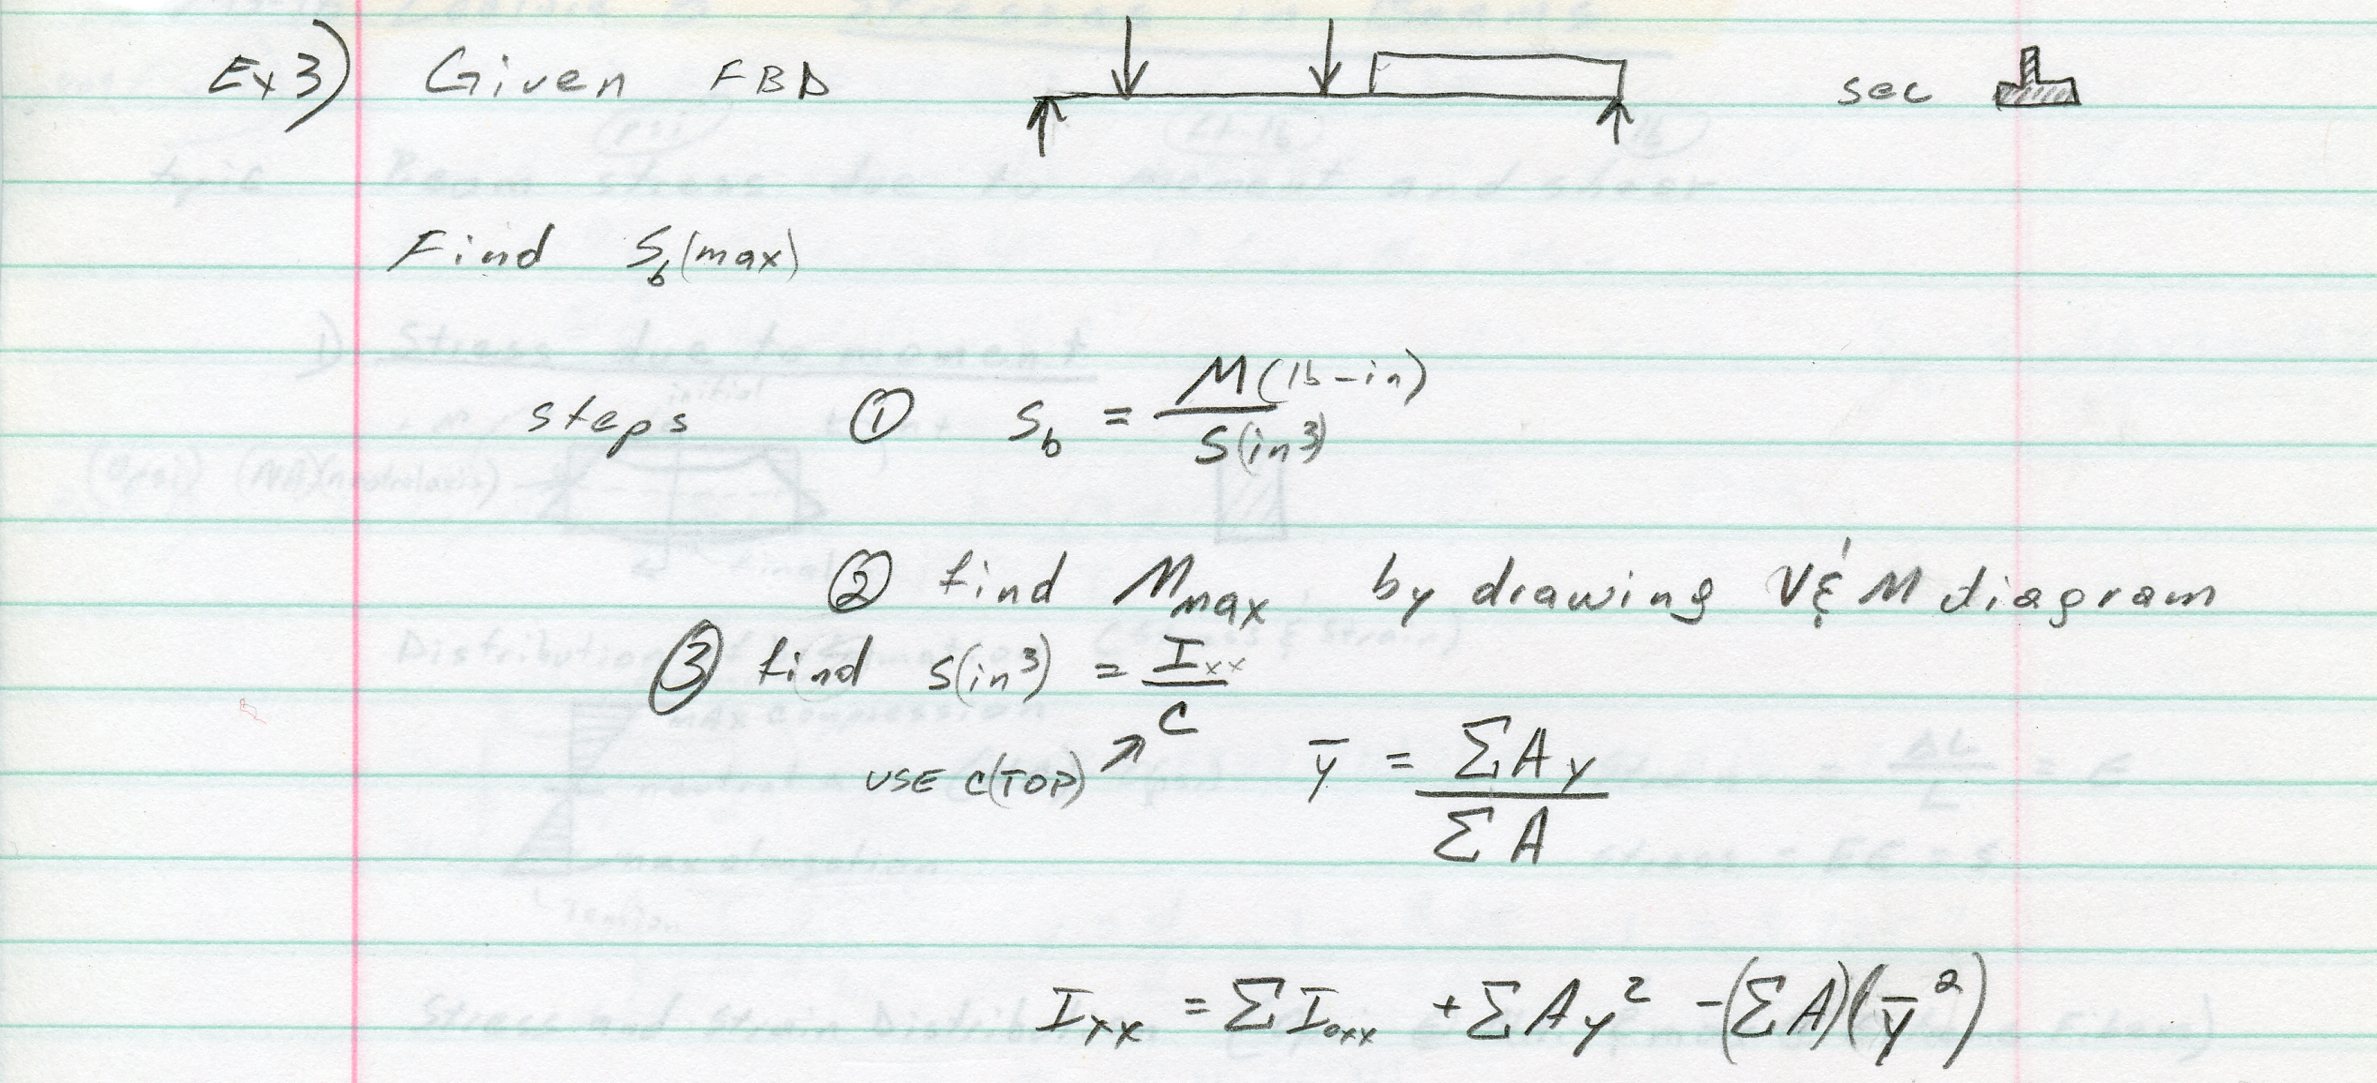 Ex 3) Given FBD sec
Find S_b(max)
steps ① S_b = M(lb-in) / S(in³)
② find M_max by drawing V & M diagram
③ find S(in³) = I_xx / C
USE C(TOP) ↗ ȳ = ΣAy / ΣA
I_xx = ΣI_oxx + ΣAy² - (ΣA)(ȳ²)